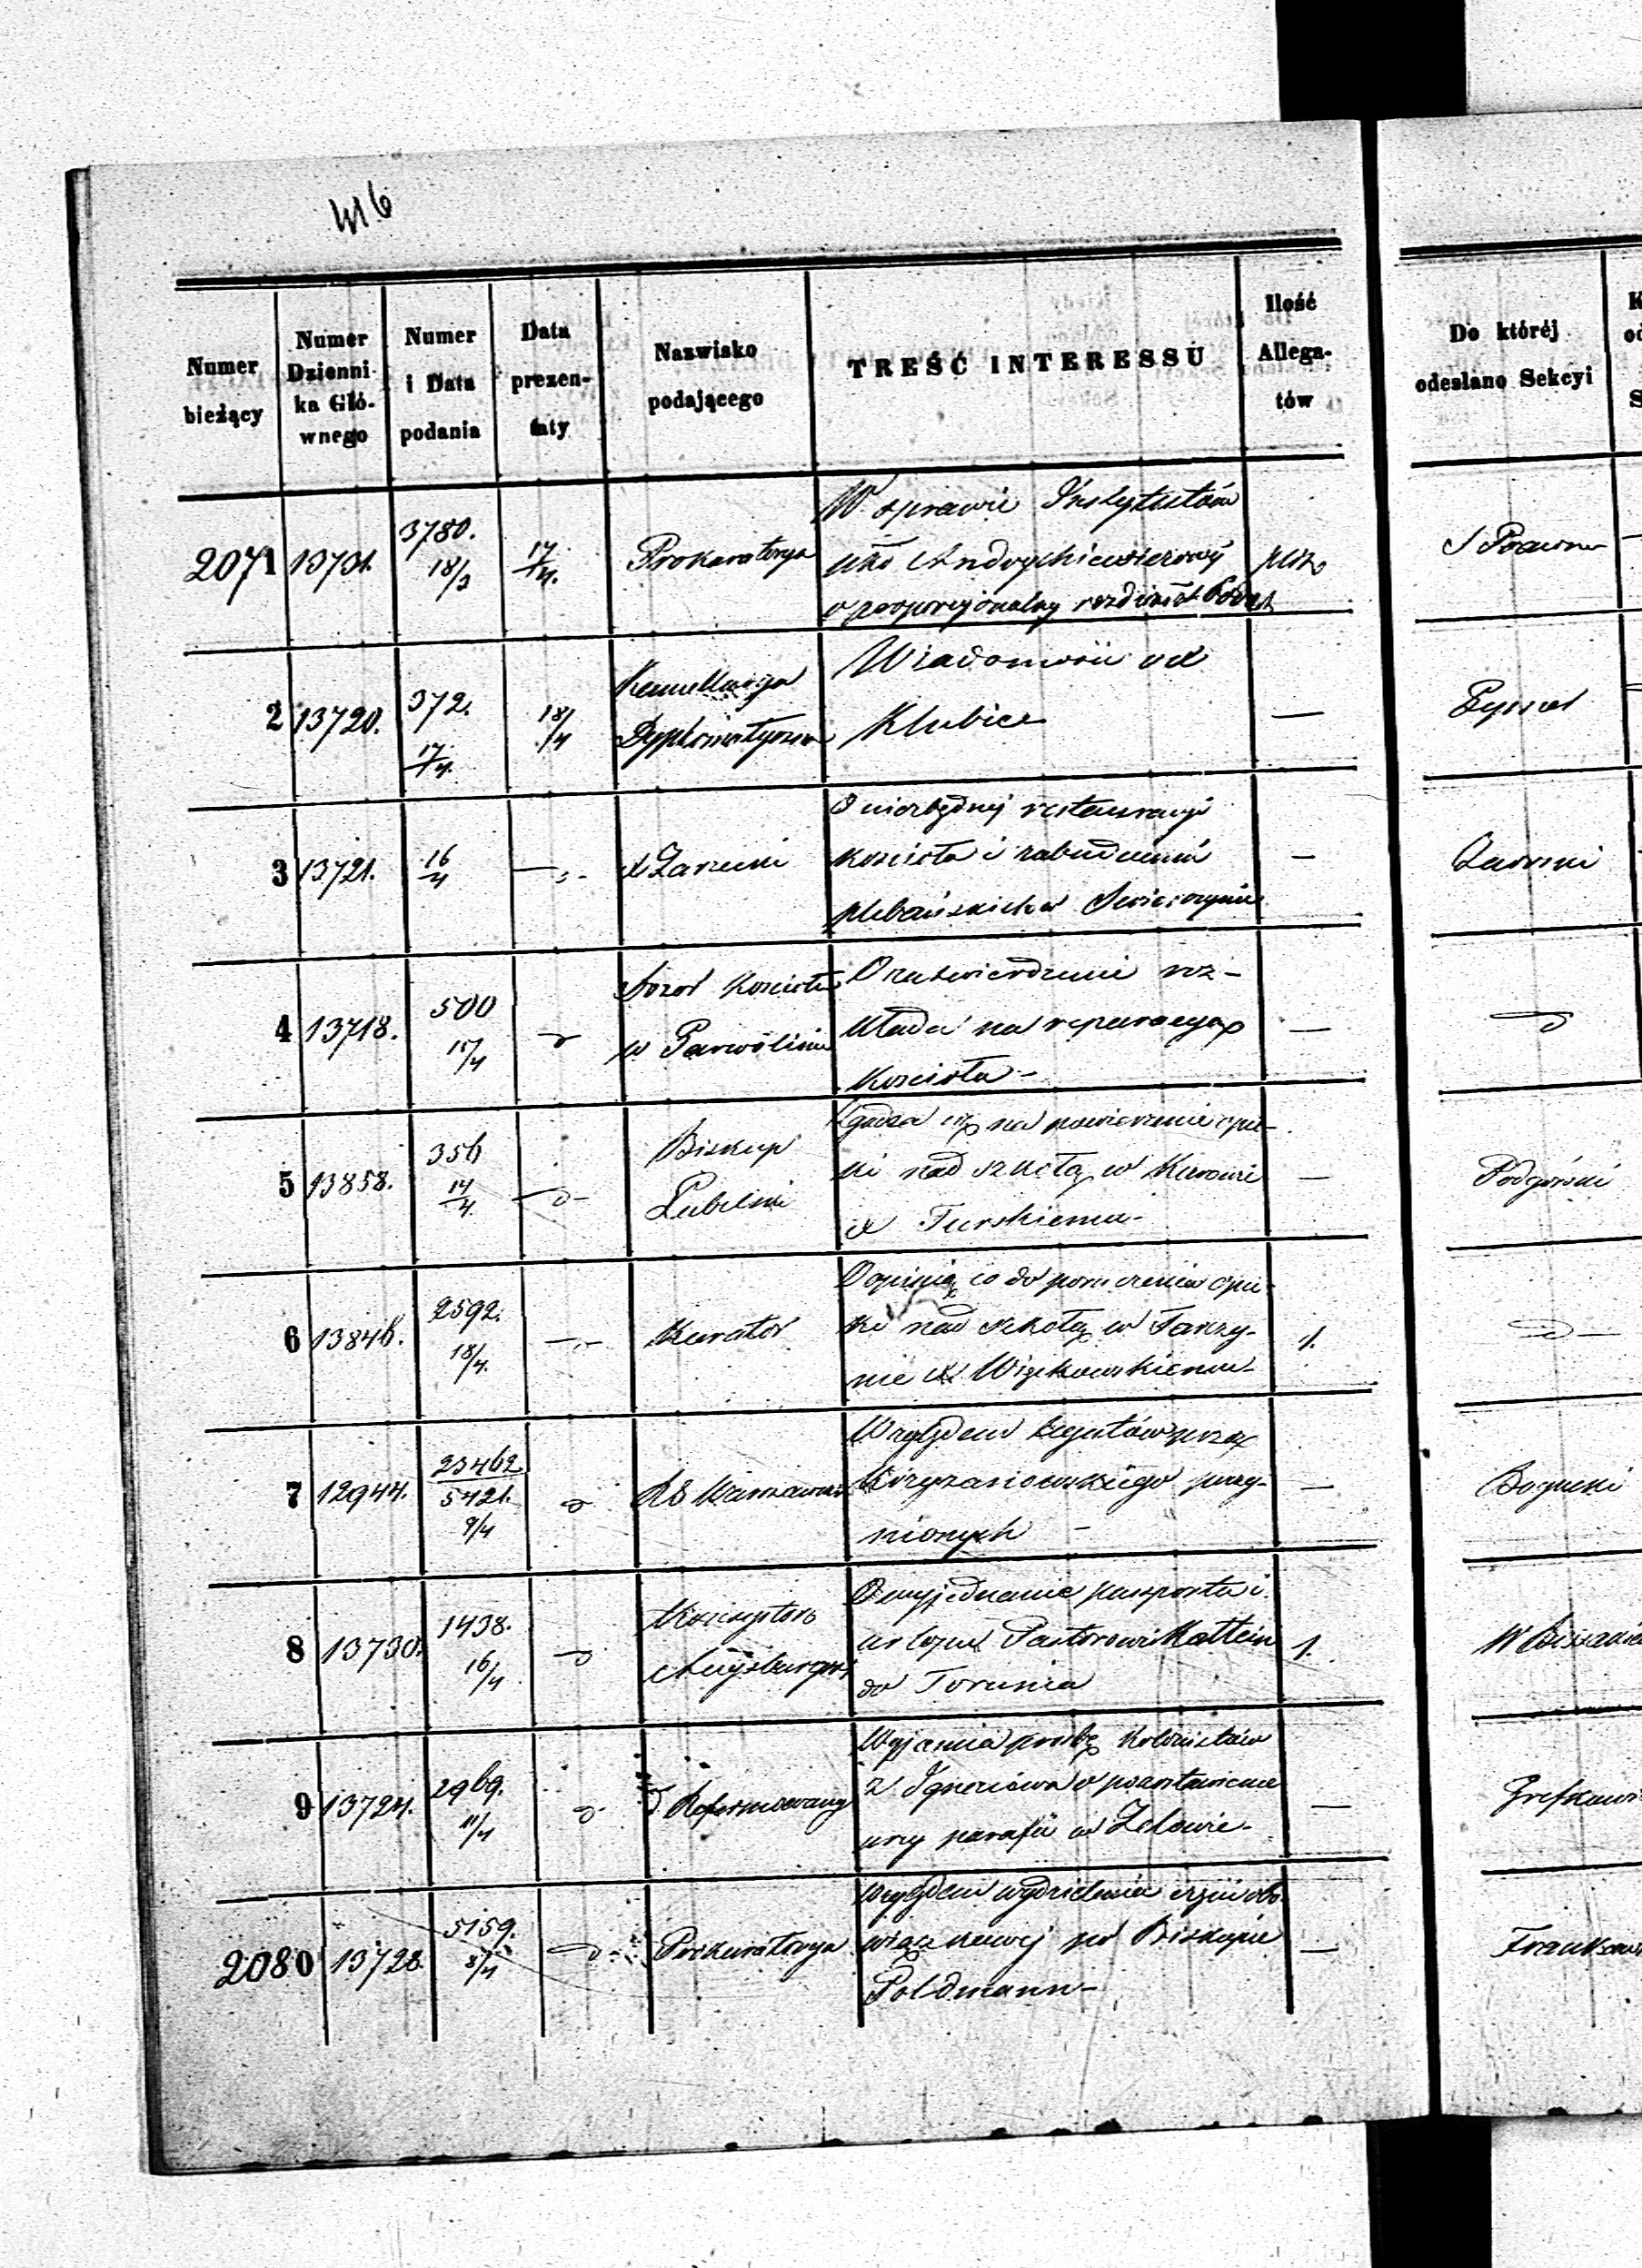 416
Numer bieżący | Numer Dzienni- ka Głó- wnego | Numer i Data podania | Data prezen- taty | Nazwisko podającego | TREŚĆ INTERESSU | Ilość Allega- tów | Do któréj odesłano Sekcyi
2071 | 13731. | 3780. 18/3 | 17/4. | Prokuratorya | W sprawie Instytutów
o proporcjonalny
2 | 13720. | 372. 17/4. | 18/4 | Kancellarya Dyplomatyczna | Wiadomości od
Klubice | —
3 | 13721. | 16/4 | X Zarzecki | O niezbędnej restauracyi
kościoła i zabudowań
plebańskich w | —
4 | 13718. | 500 17/4 | Dozór Kościoła w Garwolinie | O zatwierdzenie roz-
kładu na reparacyą
Kościoła - | —
5 | 13858. | 356 14/4 | Biskup Lubelski | Zgadza się na powierzenie opie-
ki nad szkołą w Kurowie
X Turskiemu - | — | Podgórski
6 | 13846. | 2592. 18/4. | Kurator | O opinią co do poruczenia opie-
ki nad szkołą w Tarczy-
nie X Więckowskiemu - | 1.
7 | 12944. | 23462 5421. 9/4 | RG Warszawski | Względem legatów przez
Krzyżanowskiego poczy-
nionych - | — | Bogucki
8 | 13730. | 1438. 16/4 | Konsystorz Augsburgski | O wyjednanie paszportu i
urlopu Pastorowi
do Torunia | 1.
9 | 13724. | 2969. 11/4 | Reformowany | Wyjaśnia prośbę Kolonistów
z Ignacowa o pozostawienie
przy parafii w Zelowie - | —
2080 | 13728. | 5159. 8/4 | Prokuratorya | Względem wydzielenia części obo-
wiązkowej po Biskupie
Goldmann - | —